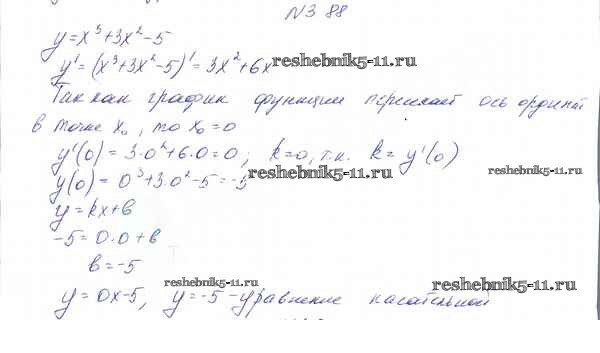 N3 88
y=x³+3x²-5
y'=(x³+3x²-5)'=3x²+6x
reshebnik5-11.ru
Так как график функции пересекает ось ординат
в точке x₀, то x₀=0
y'(0)=3·0²+6·0=0; k=0, т.к. k=y'(0)
y(0)=0³+3·0²-5=-5
reshebnik5-11.ru
reshebnik5-11.ru
y=kx+в
-5=0·0+в
в=-5
reshebnik5-11.ru
reshebnik5-11.ru
y=0x-5, y=-5-уравнение касательной